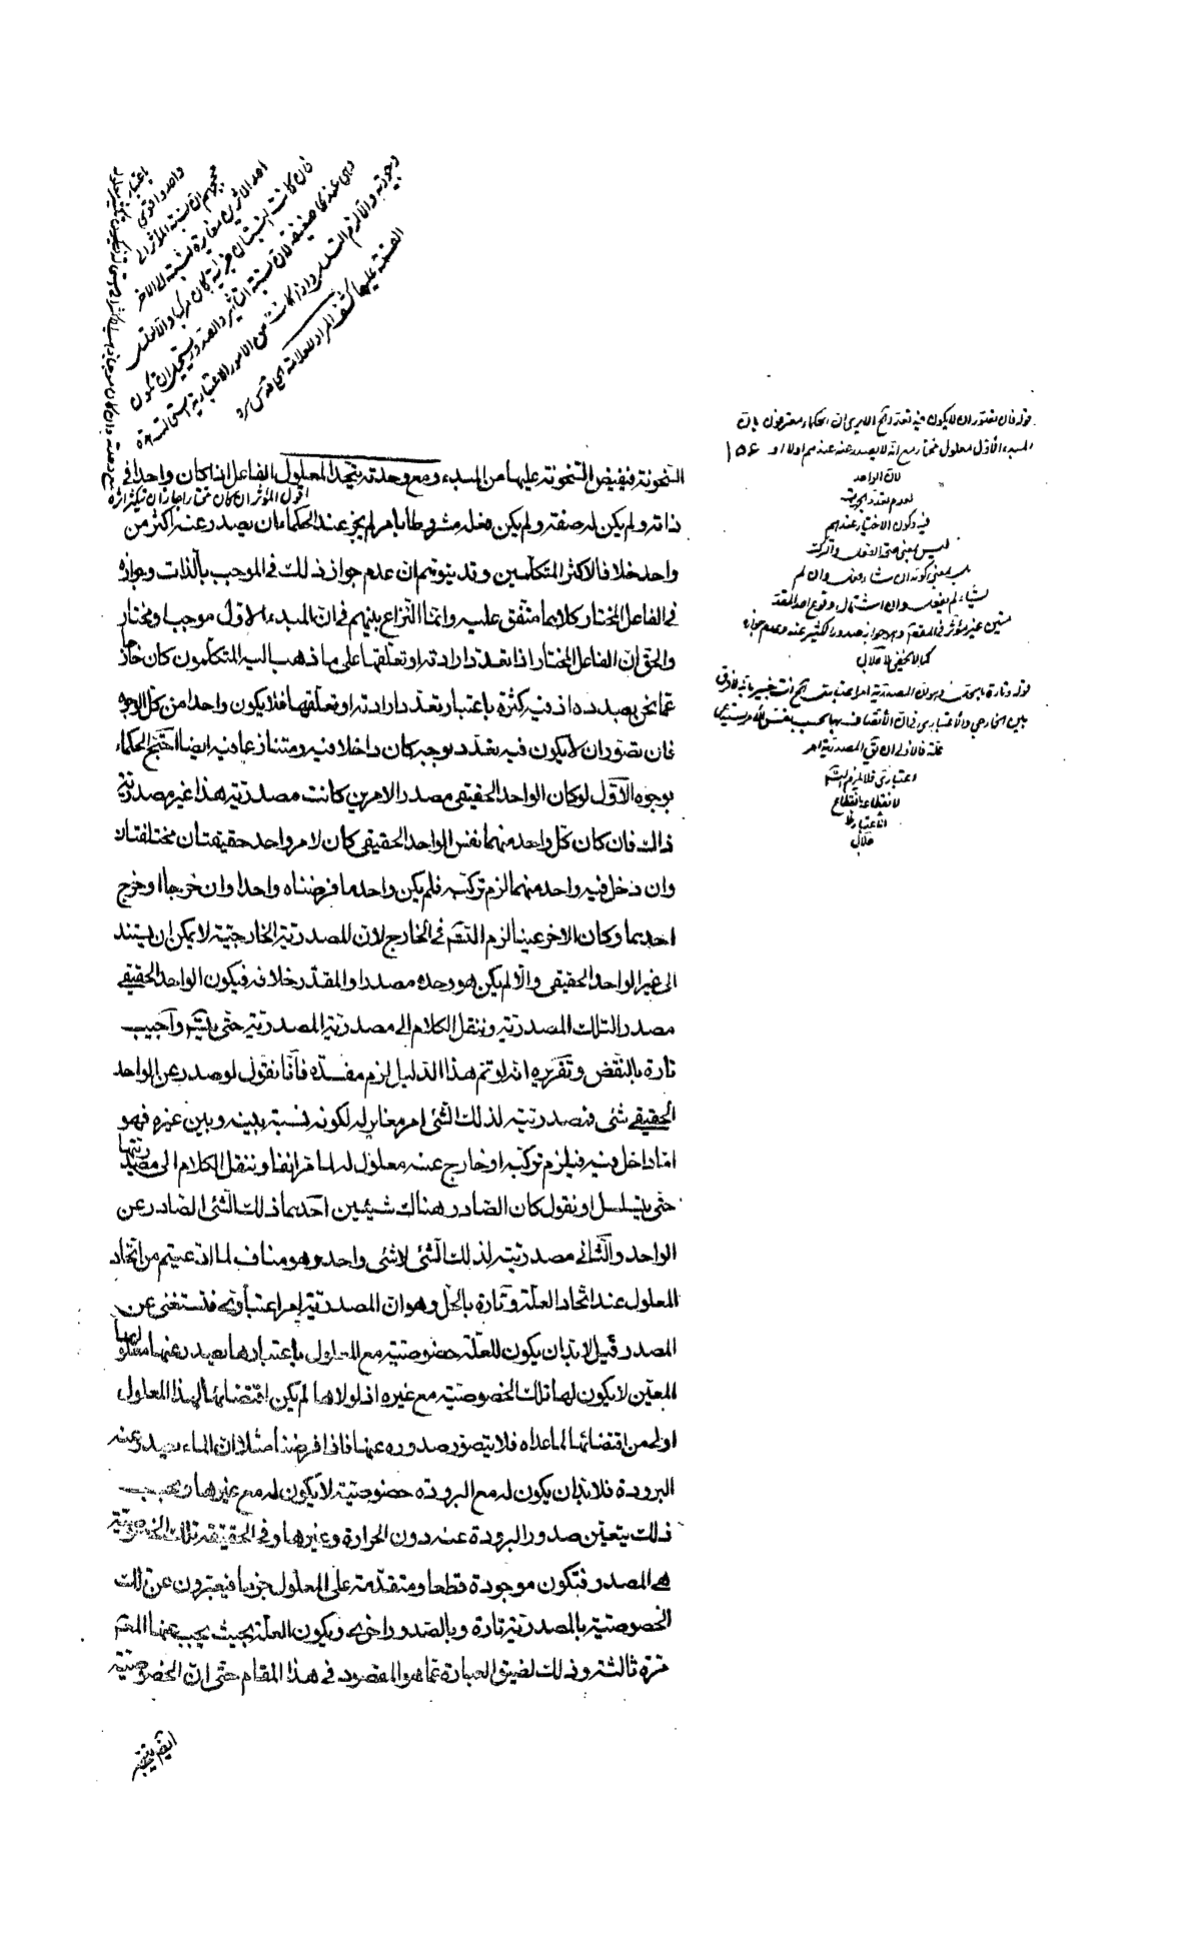 السخونة فيفيض السخونة عليها من المبدء ومع وحدته يتحد المعلول الفاعل اذا كان واحدا في
ذاته ولم يكن له صفة ولم يكن فعله مشروطا بامر لم يجز عند الحكماء ان يصدر عنه اكثر من
واحد خلافا لاكثر المتكلمين وقد يتوهم ان عدم جواز ذلك في الموجب بالذات وجوازه
في الفاعل المختار كلاهما متفق عليه وانما النزاع بينهم في ان المبدء الاول موجب او مختار
والحق ان الفاعل المختار اذا تعدد ارادته او تعلقها على ما ذهب اليه المتكلمون كان خارجا
عما نحن بصدده اذ فيه كثرة باعتبار تعدد ارادته او تعلقها فلا يكون واحدا من كل الوجوه
فان تصور ان لا يكون فيه تعدد بوجه كان داخلا فيه ومتنازعا فيه ايضا احتج الحكماء
بوجوه الاول لو كان الواحد الحقيقي مصدر الامرين كانت مصدريته هذا غير مصدريته
ذاك فان كان كل واحد منهما نفس الواحد الحقيقي كان لامر واحد حقيقتان مختلفتان
وان دخل فيه واحد منهما لزم تركبه فلم يكن واحد ما فرضناه واحدا وان خرجا او خرج
احدهما وكان الاخر عينا لزم التسم في الخارج لان المصدرية الخارجية لا يمكن ان يستند
الى غير الواحد الحقيقي والا لم يكن هو وحده مصدرا والمقدر خلافه فيكون الواحد الحقيقي
مصدر التلك المصدرية وننقل الكلام الى مصدرية المصدرية حتى يتسم واجيب
تارة بالنقض وتقريره انه لو تم هذا الدليل لزم مفسدة فانا نقول لو صدر عن الواحد
الحقيقي شئ فمصدريته لذلك الشئ امر مغاير له لكونه نسبة بينه وبين غيره فهو
اما داخل فيه فيلزم تركبه او خارج عنه معلول له لما مر انفا وننقل الكلام الى مصدريتها
حتى يتسلسل او نقول كان الصادر هناك شيئين احدهما ذلك الشئ الصادر عن
الواحد والثاني مصدريته لذلك الشئ لا شئ واحد وهو مناف لما ادعيتم من اتحاد
المعلول عند اتحاد العلة وتارة بالحل وهو ان المصدرية امر اعتباري فتستغنى عن
المصدر قيل لا بد ان يكون للعلة خصوصية مع المعلول باعتبارها يصدر عنها معلولها
المعين لا يكون لها تلك الخصوصية مع غيره اذ لولاها لم يكن اقتضائها لهذا المعلول
اولى من اقتضائها لما عداه فلا يتصور صدوره عنها فاذا فرضنا مثلا ان الماء يصدر عنه
البرودة فلا بد ان يكون له مع البرودة خصوصية لا يكون له مع غيرها وبحسب
ذلك يتعين صدور البرودة عنه دون الحرارة وغيرها وفي الحقيقة تلك الخصوصية
هي المصدر فتكون موجودة قطعا ومتقدمة على المعلول جزما فيعبرون عن تلك
الخصوصية بالمصدرية تارة وبالصدور اخرى وبكون العلة بحيث يجب عنها المعلول
مرة ثالثة وذلك لضيق العبارة عما هو المقصود في هذا المقام حتى ان الخصوصية
ايضا
اقول المؤثر ان كان مختارا جاز ان يتكثر اثره
مع وحدته وان كان موجبا
باعتبار
واحد واقوى
حججهم ان نسبة المؤثر الى
احد الاثرين مغايرة لنسبته الى الاخر
فان كانت النسبتان جزئية كان مركبا والا تسلسل
وهي عندي ضعيفة لان نسبة التأثير والصدور يستحيل ان تكون
وجودية والا لزم التسلسل واذا كانت من الامور الاعتبارية استحالت
القسمة عليها كشف المراد للعلامة الحلي قدس سره
قوله فان تصور ان لا يكون فيه تعدد الخ لا يرى ان الحكماء معترفون بان
المبدء الاول معلول مختار مع انه لا يصدر عنه عندهم اولا ١٥٦
لان الواحد
لعدم تعدد الجهة
فيه وكون الاختيار عندهم
ليس بمعنى صحة الفعل والترك
بل بمعنى كونه ان شاء فعل وان لم
يشاء لم يفعل واشتمال وقوع احد المقد
متين غير مؤثر في المقام وهو جواز صدور الكثير عنه وعدم جوازه
كما لا يخفى جلال
بين الخارجي والاعتباري في ان الاتصاف بها بحسب نفس الامر يستدعي
علة فالاولى ان يق المصدرية امر
اعتباري فلا يلزم التسم
لانقطاعه بانقطاع
الاعتبار
جلال